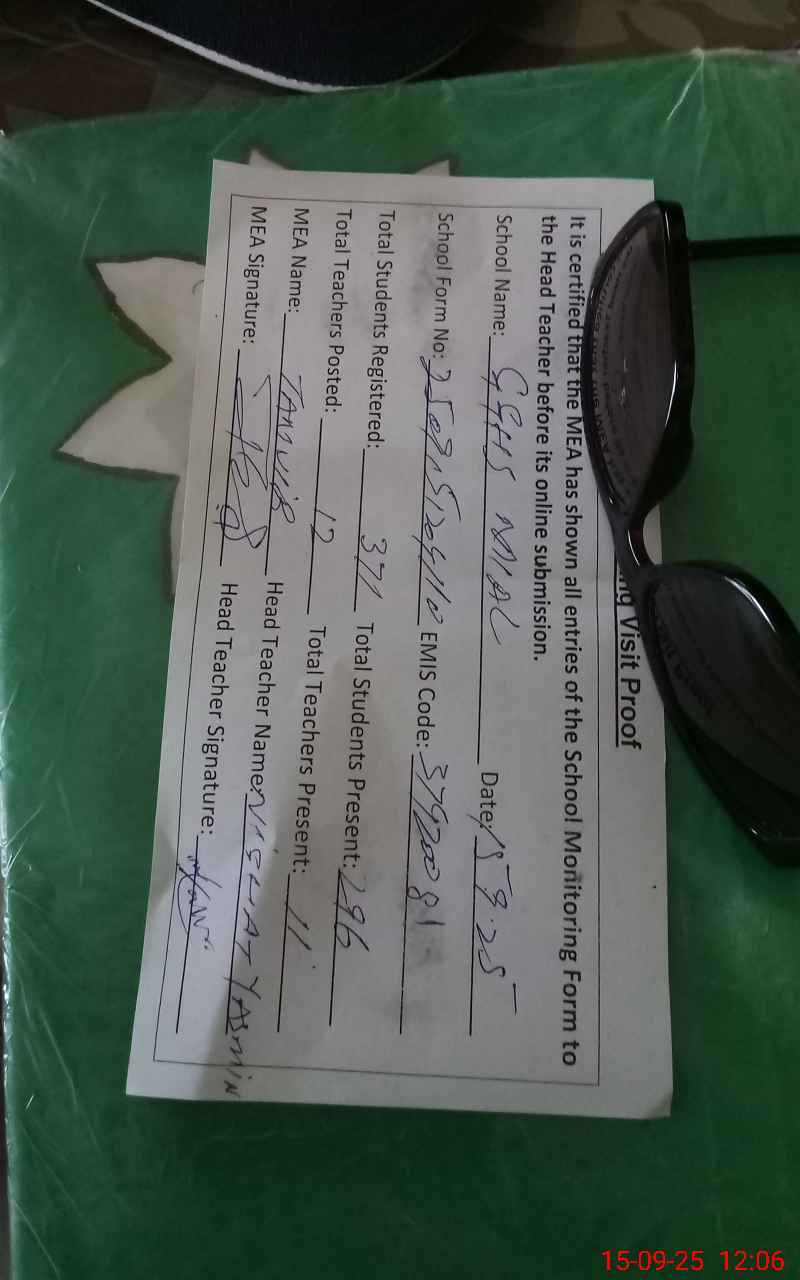 ng Visit Proof
It is certified that the MEA has shown all entries of the School Monitoring Form to
the Head Teacher before its online submission.
School Name: GGHS MIAL Date: 15.9.25
School Form No: EMIS Code: 37920081
Total Students Registered: 371 Total Students Present: 296
Total Teachers Posted: 12 Total Teachers Present: 11
MEA Name: TANVIR Head Teacher Name: NIGHAT YASMIN
MEA Signature: Head Teacher Signature:
15-09-25 12:06